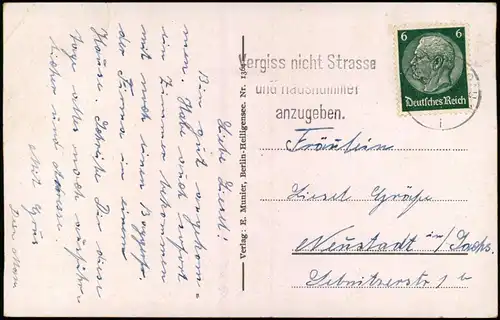 Liebe Liesel!
Bin gut angekom-
men. Habe auch sofort
ein Zimmer bekommen
mit noch einen
der Firma in einem
Hause. Schreibe Dir diese
Tage alles noch ausführ-
licher und Adresse.
Mit Gruß
Verlag: E. Munier, Berlin-Heiligensee. Nr. 136
Vergiss nicht Strasse
und Hausnummer
anzugeben.
6 6
Deutsches Reich
Fräulein
Liesel Gräfe
Neustadt in/Sachs.
Sebnitzerstr 1 b